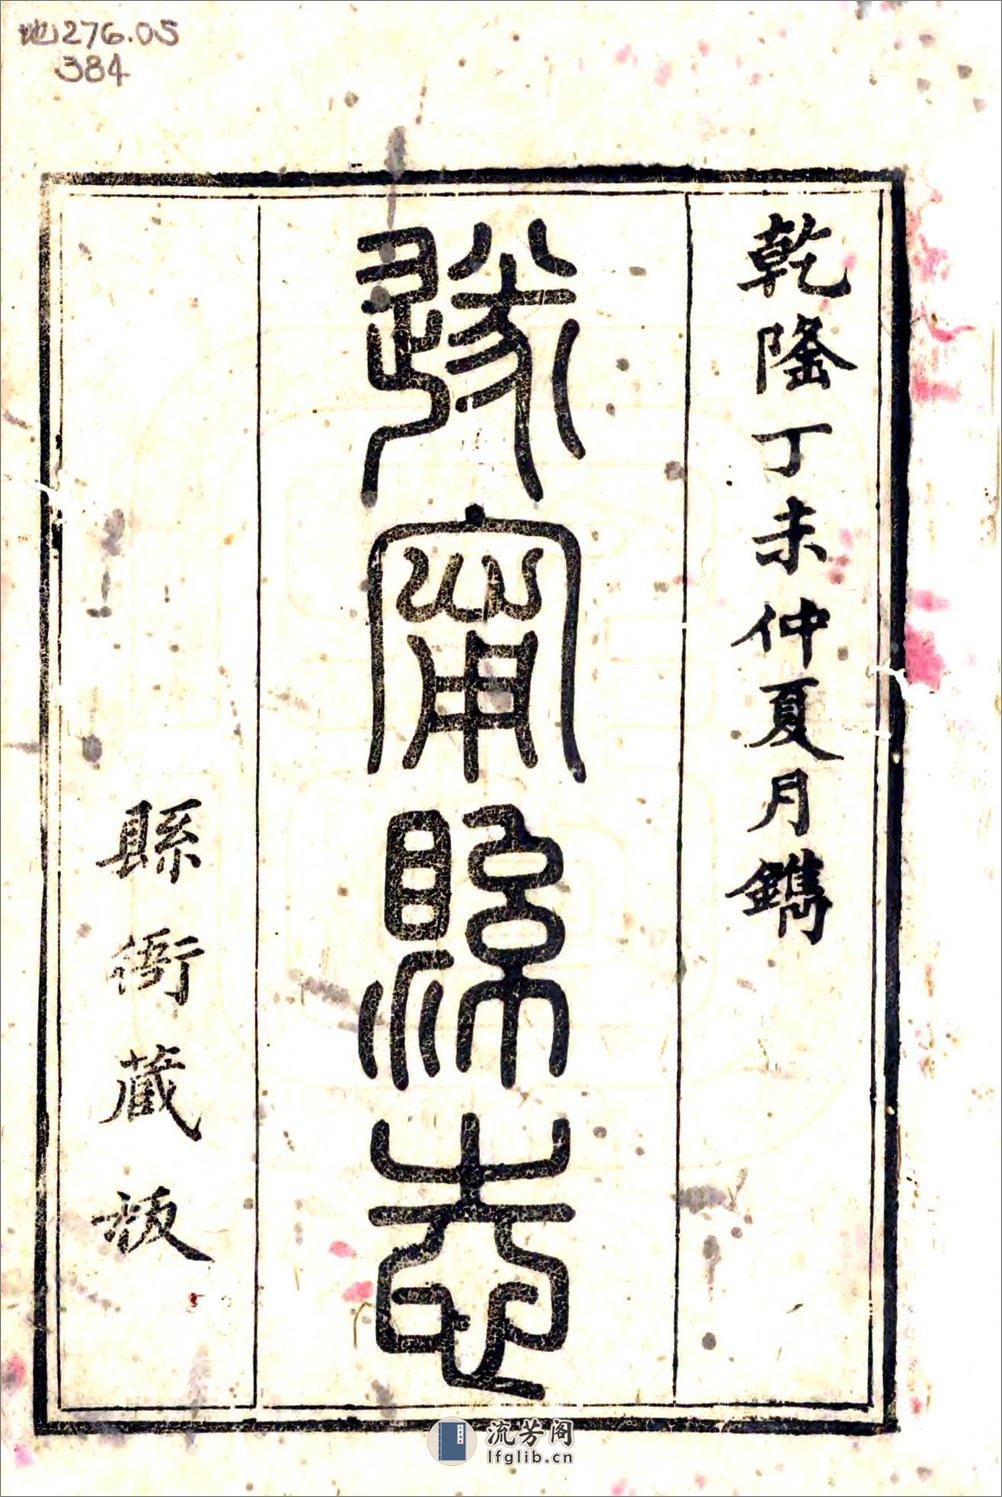 地276.05
384
乾隆丁未仲夏月鐫
遂甯縣志
縣衙藏板
流芳阁
lfglib.cn